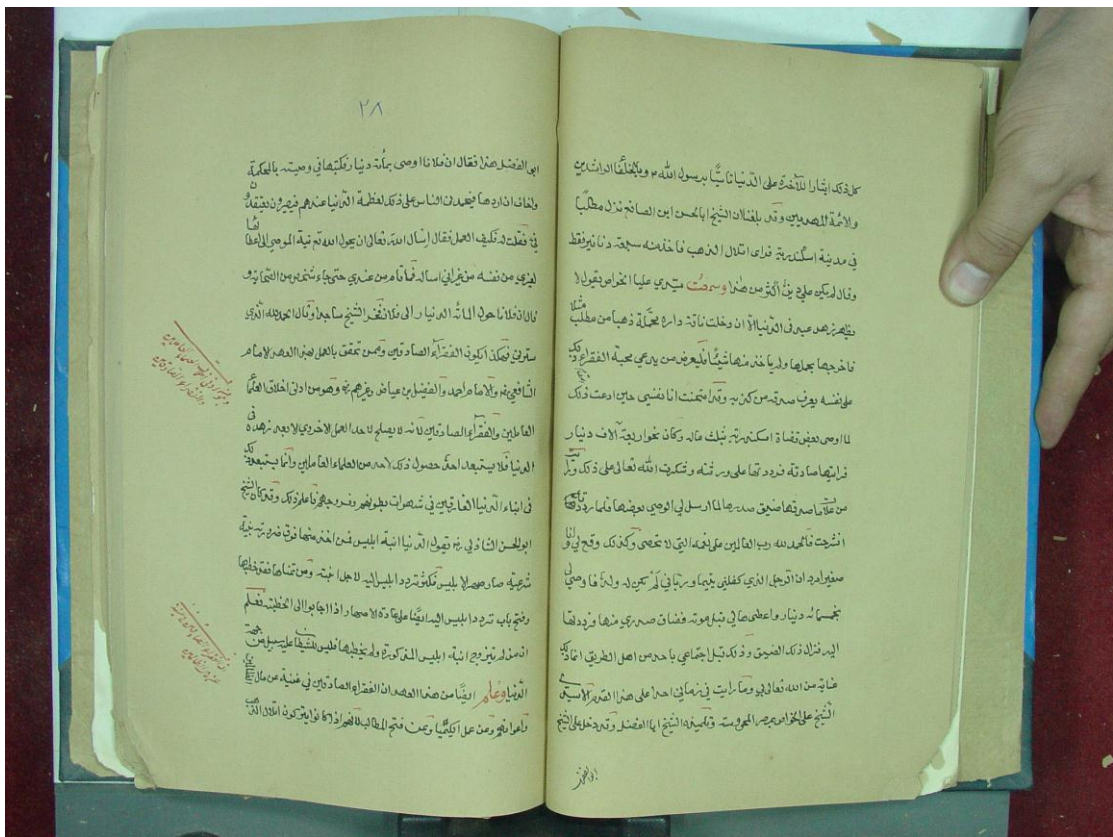 كل ذلك ايثارا للآخرة على الدنيا تأسيًا برسول الله م وبالخلفا الراشدين
والائمة المهديين وقد بلغنا ان الشيخ ابا الحسن ابن الصائغ نزل مطلبا
في مدينة اسكندرية فراى اتلال الذهب فاخذ منه سبعة دنانير فقط
وقال لم يكن علي دين اكثر من هذا وسمعت سيدي عليا الخواص يقول لا
يظهر زهد عبد في الدنيا الا ان دخلت ناقة داره محملة ذهبا من مطلب مثلا
فاخرجها بحملها ولم ياخذ منها شيئا فليعرض من يدعي محبة الفقراء ذلك
على نفسه يعرف صدقه من كذبه وقد امتحنت انا نفسي حين ادعت ذلك
لما اوصى بعض قضاة اسكندرية بثلث ماله وكان نحو اربعة آلاف دينار
فرايتها صادقة فرددتها على ورثته وشكرت الله تعالى على ذلك
من علامة صدقها ضيق صدرها لما ارسل لي الوصي بعضها فلما رددتها
انشرحت فالحمد لله رب العالمين على نعمه التي لا تحصى وكذلك وقع لي وانا
صغير امرد ان الرجل الذي كفلني يتيما ورباني لم يكن له ولد فاوصى لي
بخمسمائة دينار واعطاها لي قبل موته فضاق صدري منها فرددتها
اليه فزال ذلك الضيق وذلك قبل اجتماعي باحد من اهل الطريق
عناية من الله تعالى بي وما رايت في زماني احدا على هذا القدم الا سيدي
الشيخ علي الخواص بمصر المحروسة وتلميذه الشيخ ابا الفضل وقد دخل على الشيخ
ابي الفضل
٢٨
ابي الفضل هذا فقال ان فلانا اوصى بمائة دينار فكتبها في وصيته بالمحكمة
واخاف ان اردها فيحمدن الناس على ذلك لعظمة الدنيا عندهم فيصيرون يعتقدون
في فقلت له فكيف العمل فقال اسال الله تعالى ان يحول الله تم نية الموصي الى اعطائها
لغيري من نفسه من غير اني اساله فما قام من عندي حتى جاء شخص من التجار و
قال ان فلانا حول المائة الدينار الى فلان فخر الشيخ ساجدا وقال الحمد لله الذي
سترني فهكذا تكون الفقراء الصادقين وممن تحقق بالعمل بهذا العهد الامام
الشافعي رض والامام احمد والفضيل بن عياض وغيرهم رض وهو من ادنى اخلاق العلما
العاملين والفقراء الصادقين لانه لا يصلح لاحد العمل الاخروي الا بعد زهده في
الدنيا فلا يستبعد احد حصول ذلك لاحد من العلماء العاملين وانما يستبعد ذلك
في ابناء الدنيا الغارقين في شهوات بطونهم وفروجهم فاعلم ذلك وقد كان الشيخ
ابو الحسن الشاذلي رض يقول الدنيا ابنة ابليس فمن اخذ منها فوق ضرورته بنية
شرعية صار صهرا لابليس فكثر تردد ابليس اليه لاجل ابنته ومن تمناها فقد خطبها
وفتح باب تردد ابليس اليه ايضا على عادة الاصهار اذا اجابوا الى الخطبة فعلم
ان من لم يتزوج ابنة ابليس المذكورة ولم يخطبها فليس للشيطان عليه سبيل من جهة
الدنيا وعلم ايضا من هذا العهد ان الفقراء الصادقين في غنية عن مال
وعن عمل الكيميا وعن فتح المطالب لانهم اذا